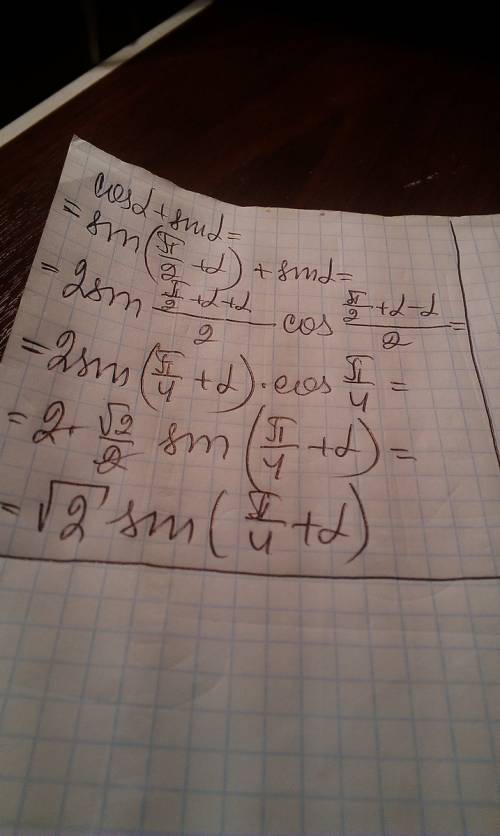 cosα + sinα =
= sin(π/2 + α) + sinα =
= 2sin (π/2 + α + α)/2 cos (π/2 + α - α)/2 =
= 2sin(π/4 + α) · cos π/4 =
= 2 · √2/2 sin(π/4 + α) =
= √2 sin(π/4 + α)